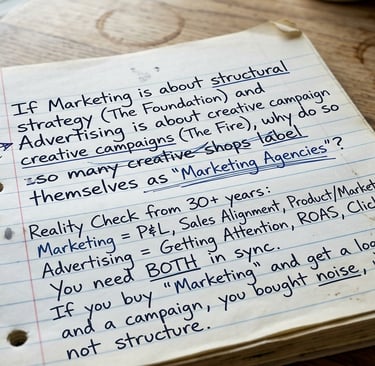 If Marketing is about structural
strategy (The Foundation) and
Advertising is about creative campaign
creative campaigns (The Fire), why do so
so many creative shops label
themselves as "Marketing Agencies"?
Reality Check from 30+ years:
Marketing = P&L, Sales Alignment, Product/Market
Advertising = Getting Attention, ROAS, Click
You need BOTH in sync.
If you buy "Marketing" and get a log
and a campaign, you bought noise,
not structure.